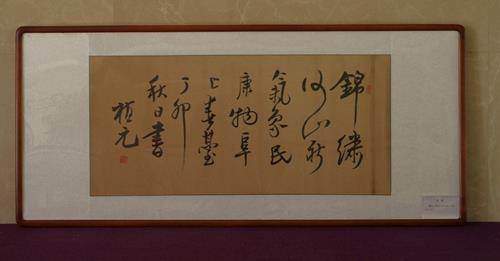 錦繡
河山新
氣象民
康物阜
上春臺
丁卯
秋日書
植元